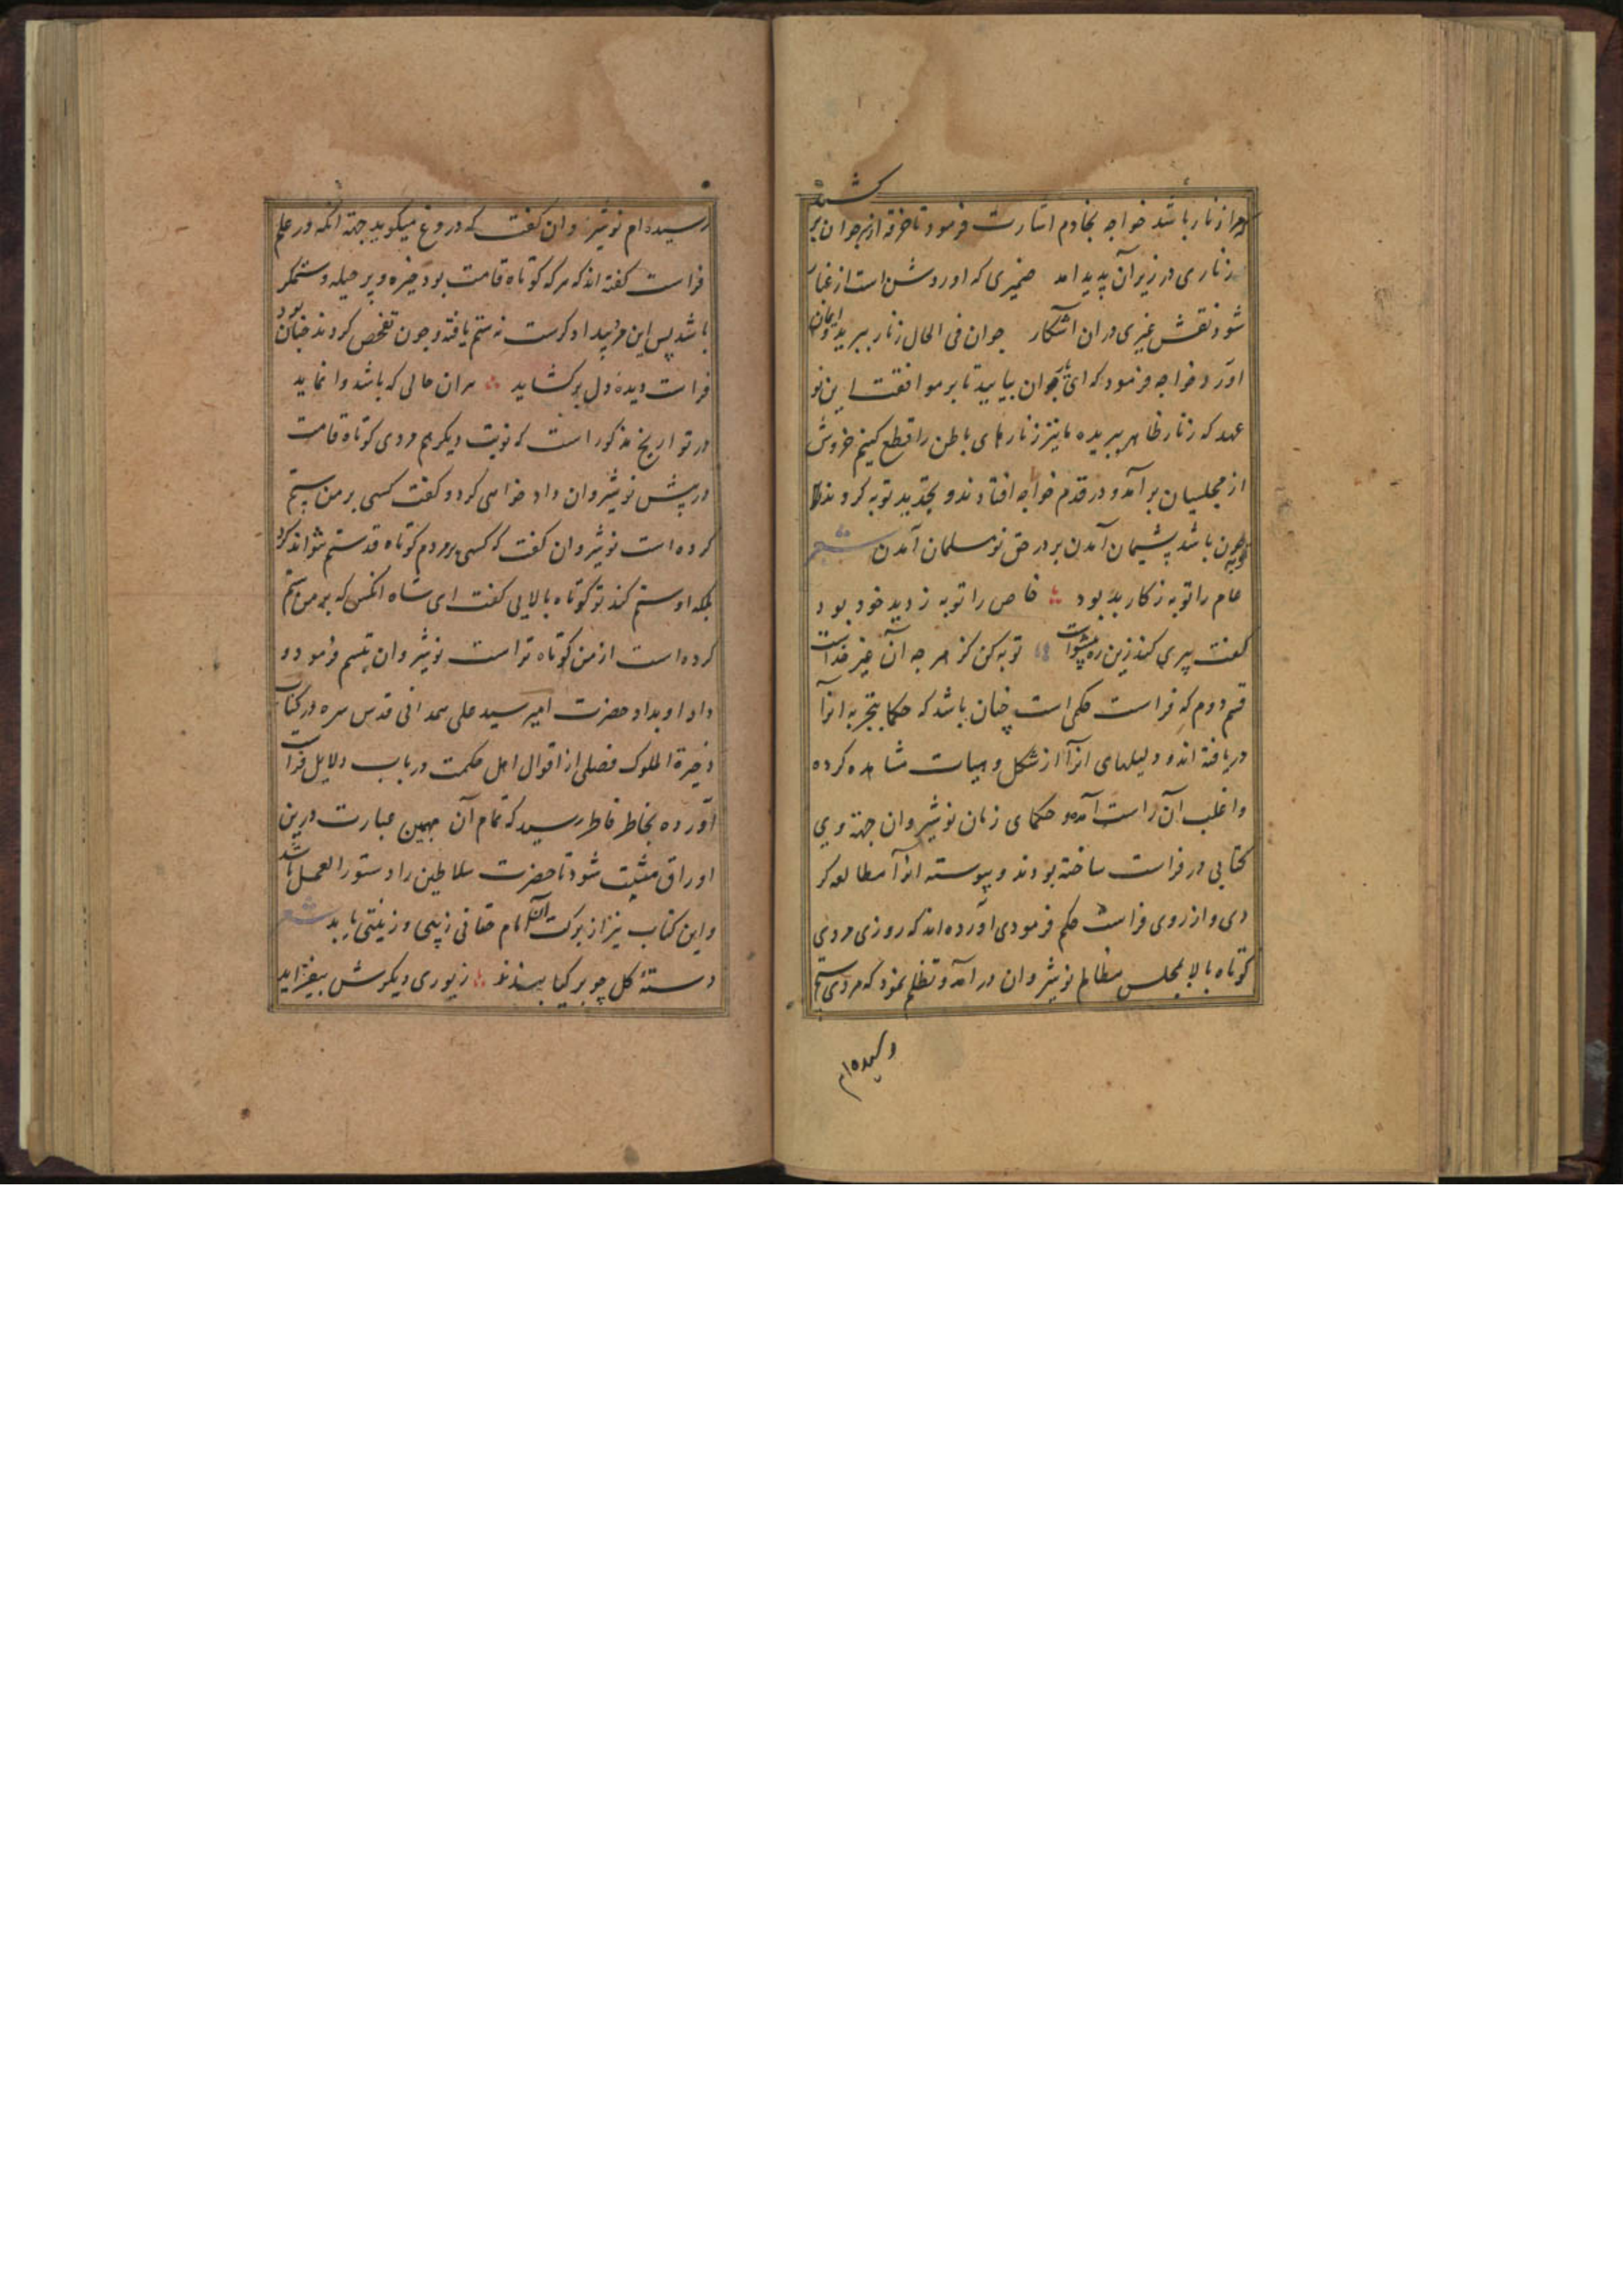 که مرا زنار باشد خواجه بخادم اشارت فرمود تا خرقه از سر جوان بر
کشید
زناری در زیر آن پدید امد ضمیری که او روشن است از غبار
شود نقش غیری در ان اشکار جوان فی الحال زنار ببرید و ایمان
اورد خواجه فرمود که ای یاران بیایید تا بر موافقت این نو
عهد که زنار ظاهر ببریده ما نیز زنارهای باطن را قطع کنیم خروش
از مجلسیان بر آمد و در قدم خواجه افتادند و بتجدید توبه کردند
توبه چون باشد پشیمان آمدن بر در حق نو مسلمان آمدن شعر
عام را توبه ز کار بد بود خاص را توبه ز دید خود بود
گفت پیری کندرین ره پیشواست توبه کن کز هر چه آن غیر خداست
قسم دوم که فراست حکمی است چنان باشد که حکما بتجربه انرا
دریافته اند و دلیلهای انرا از شکل و هیات مشاهده کرده
و اغلب آن راست آمده و حکمای زمان نوشیروان جهة وی
کتابی در فراست ساخته بودند و پیوسته انرا مطالعه کر
دی و از روی فراست حکم فرمودی اورده اند که روزی مردی
کوتاه بالا بمجلس مظالم نوشیروان در امد و تظلم نمود که مردی ستم
رسیده ام
رسیده ام نوشیروان گفت که دروغ میگوید جهة انکه در علم
فراست گفته اند که هر که کوتاه قامت بود خیره و پر حیله و ستمکر
باشد پس این مرد بیدادگرست نه ستم یافته و چون تفحص کردند چنان بود
فراست دیده دل بر کشاید هران حالی که باشد وا نماید
در تواریخ مذکور است که نوبت دیگر هم مردی کوتاه قامت
در پیش نوشیروان داد خواهی کرد و گفت کسی بر من ستم
کرده است نوشیروان گفت که کسی بر مردم کوتاه قد ستم نتواند کرد
بلکه او ستم کند تو کوتاه بالایی گفت ای شاه انکس که بر من ستم
کرده است از من کوتاه تر است نوشیروان تبسم فرمود و
داد او بداد حضرت امیر سید علی همدانی قدس سره در کتاب
ذخیرة الملوک فصلی از اقوال اهل حکمت در باب دلایل فراست
آورده بخاطر فاطر رسید که تمام آن بهمین عبارت درین
اوراق مثبت شود تا حضرت سلاطین را دستور العمل باشد
و این کتاب نیز از برکت آن امام حقانی زیبی و زینتی یابد شعر
دستهٔ کل چو بر کیا بندند زیوری دیگرش بیفزاید